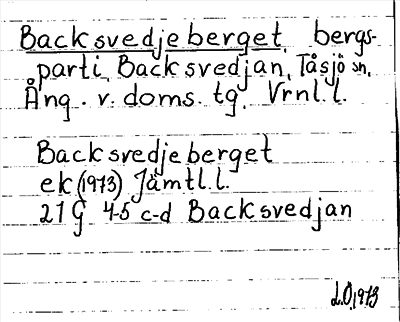 Backsvedjeberget, bergs-
parti, Backsvedjan, Tåsjö sn,
Ång. v. doms. tg, Vrnl. l.
Backsvedjeberget
ek (1973) Jämtl. l.
21 G 4-5 c-d Backsvedjan
L.O, 1973